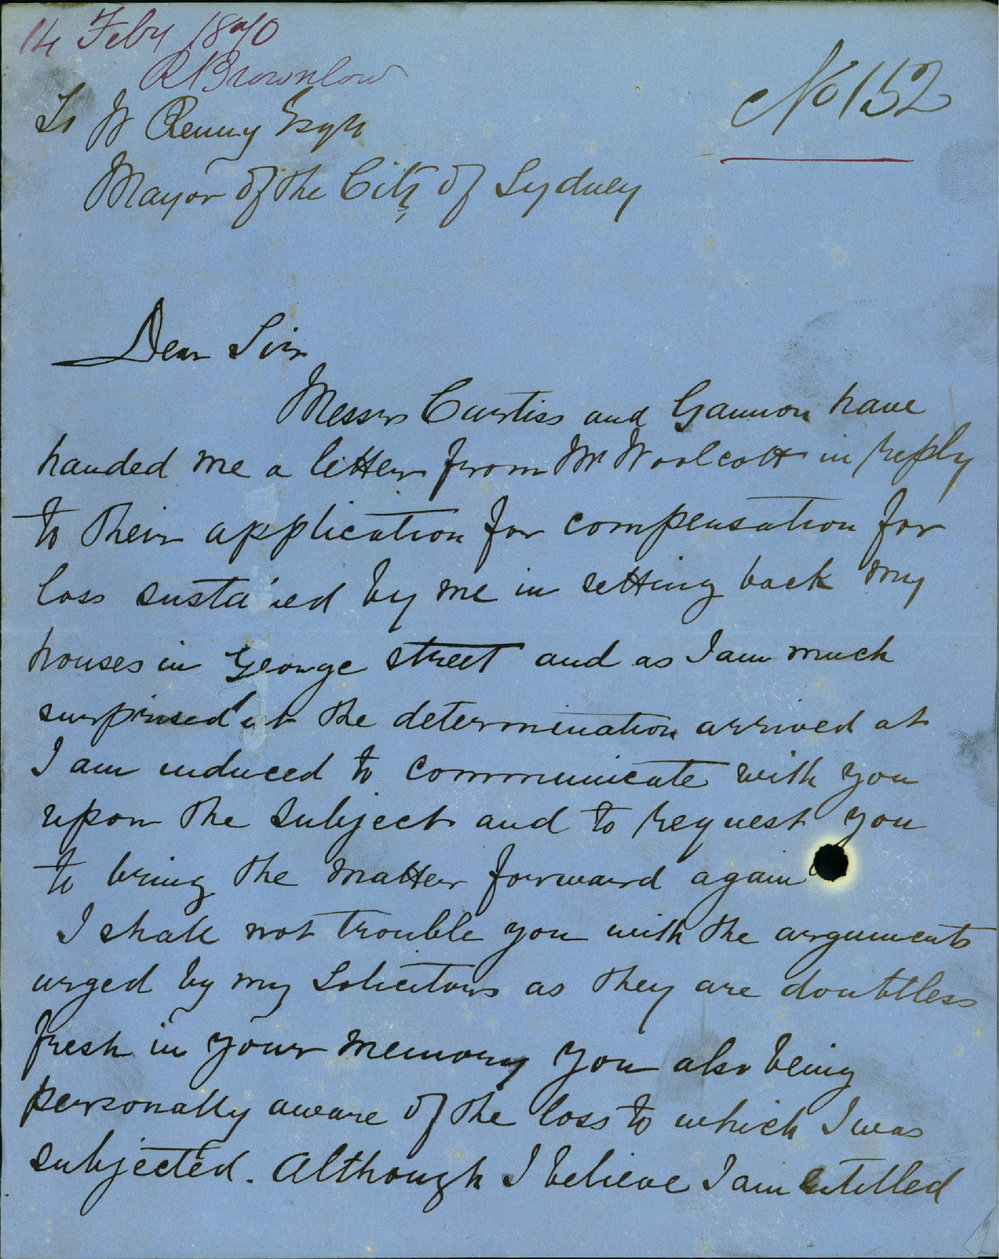 14 Feby 1870
R Brownlow
No 152
To W Renny Esqr
Mayor of the City of Sydney
Dear Sir
Messrs Curtiss and Gannon have
handed me a letter from Mr Woolcott in reply
to their application for compensation for
loss sustained by me in setting back my
houses in George street and as I am much
surprised at the determination arrived at
I am induced to communicate with you
upon the subject and to request you
to bring the matter forward again
I shall not trouble you with the arguments
urged by my Solicitors as they are doubtless
fresh in your memory you also being
personally aware of the loss to which I was
subjected. Although I believe I am entitled